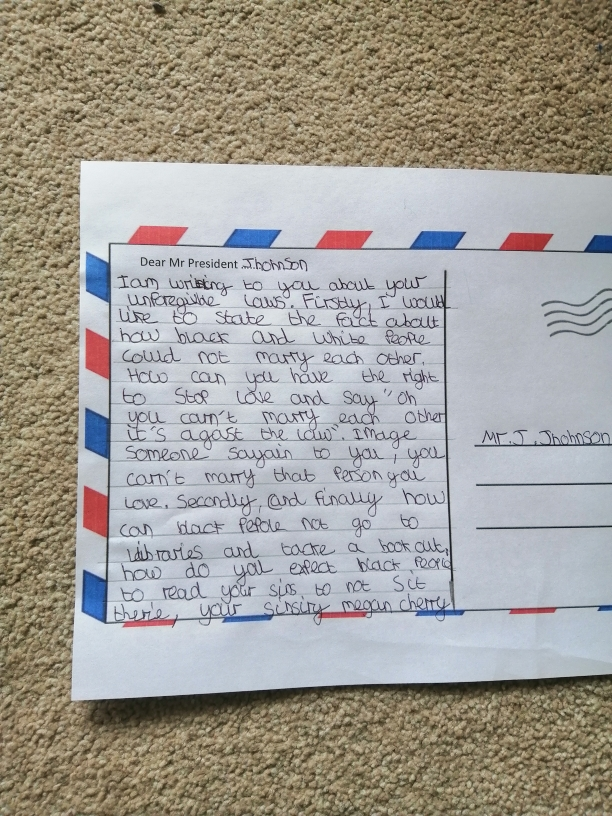 Dear Mr President Jhohnson
I am writing to you about your
unforegible laws. Firstly, I would
like to state the fact about
how black and white People
could not marry each other.
How can you have the right
to stop love and say "oh
you carn't marry each other
it's agast the law". Image
someone sayain to you, you
carn't marry that person you
love. Secondly, and finally how
can black Pepole not go to
libraries and tacke a book out,
how do you expect black People
to read your sins to not sit
there, your sinsiry megan cherry
Mr. J. Jhohnson